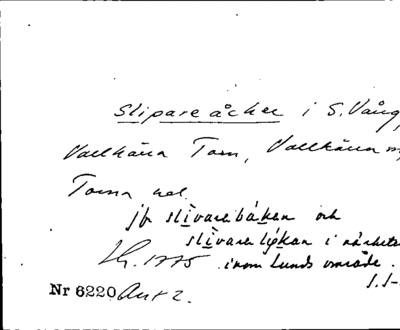 Slipareåcker i S. Vång,
Vallkärra Torn, Vallkärra
Torna hd.
jfr slìvarebáken och
slìvarelýkan i närheten
1775. inom Lunds område.
Nr 6220 Ant 2.